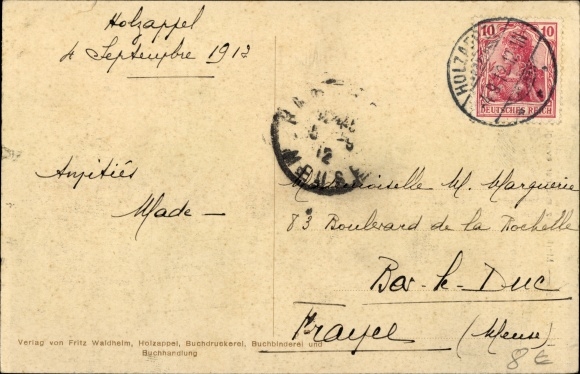 Holzappel
4 Septembre 1912
10 10
DEUTSCHES REICH
HOLZAP
12
MEUSE
Amitiés
Made —
Mademoiselle M. Marguerie
83 Boulevard de la Rochelle
Bar-le-Duc
(Meuse)
Verlag von Fritz Waldheim, Holzappel, Buchdruckerei, Buchbinderei und
Buchhandlung
8 €